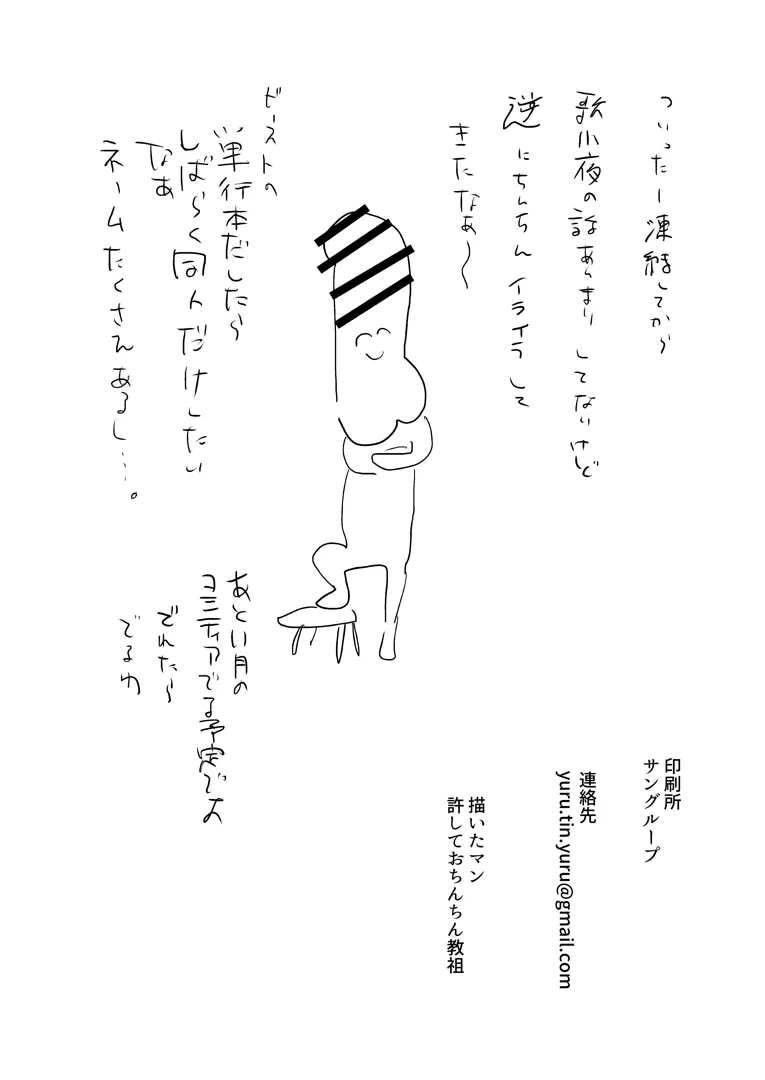 ついったー凍結してから
歌小夜の話あんまりしてないけど
逆にちんちんイライラして
きたなぁ〜
ビーストの
単行本だしたら
しばらく同人だけしたい
なあ
ネームたくさんあるし…。
あとい月の
コミティアでる予定でよ
でれたら
でるわ
印刷所
サングループ
連絡先
yuru.tin.yuru@gmail.com
描いたマン
許しておちんちん教祖